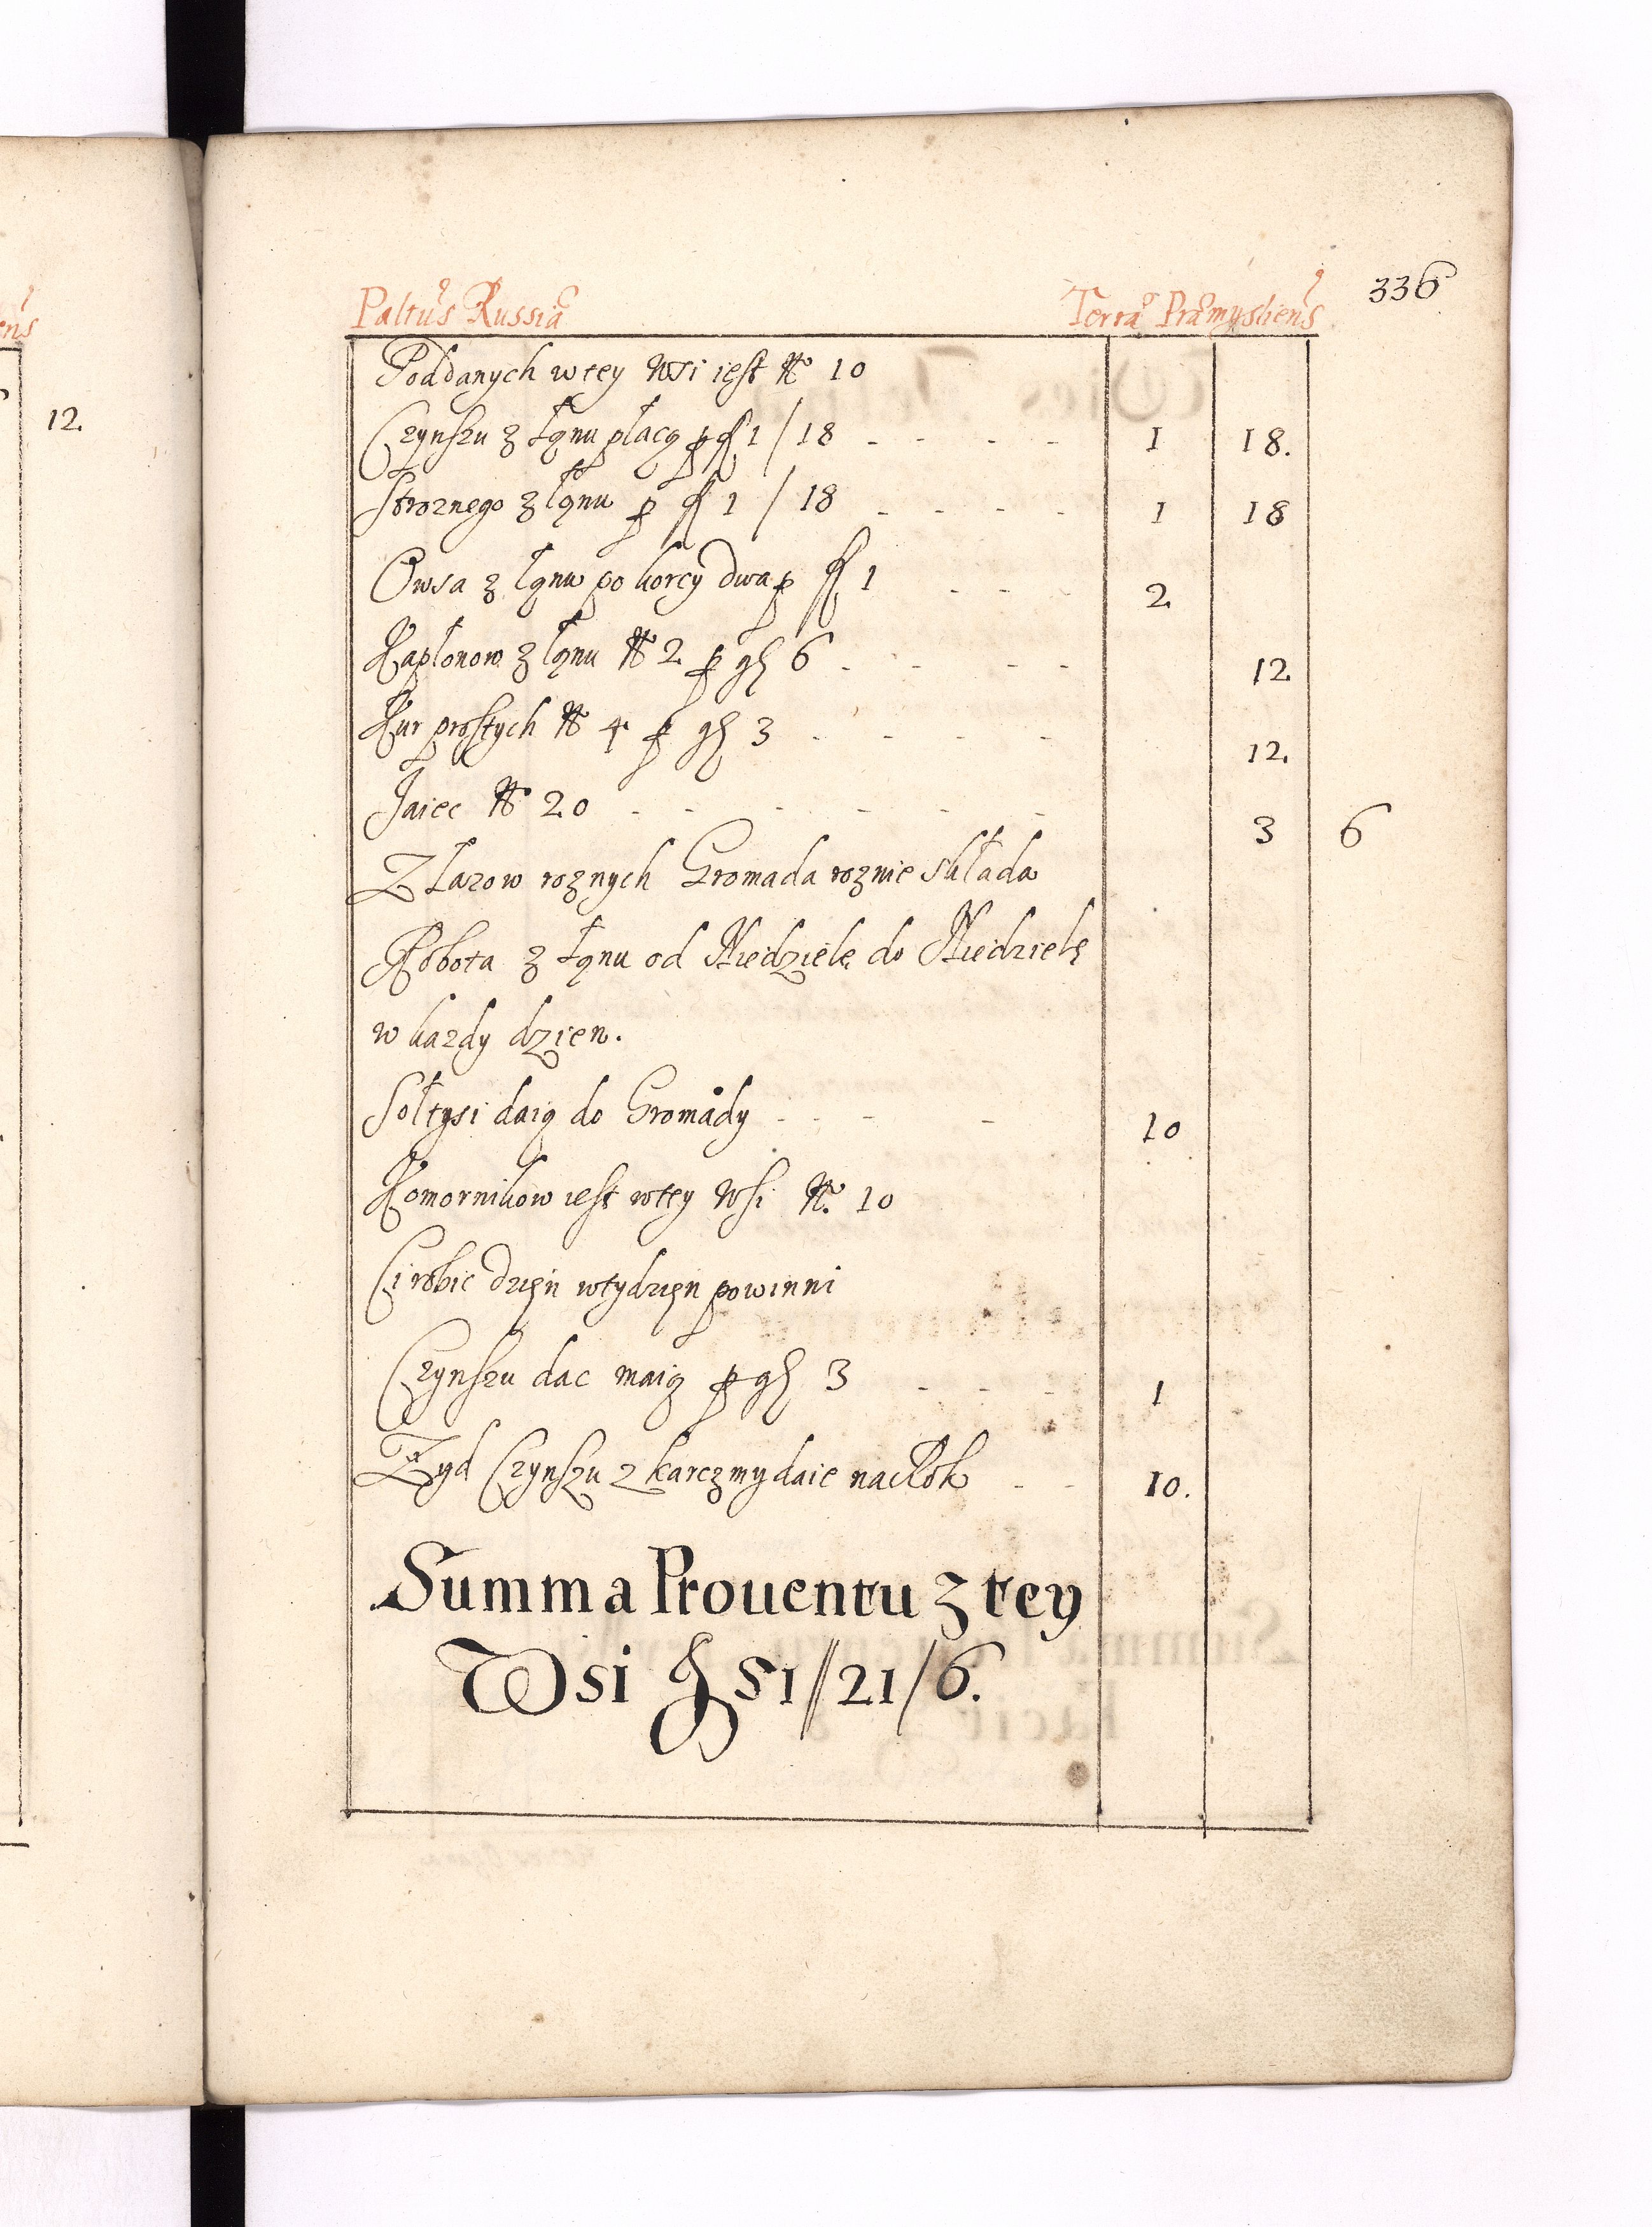 Paltus Russiæ Terræ Præmysliens 336
Poddanych w tey Wsi iest N 10
Czynszu z Łanu płacą p fl 1 / 18 - - - - 1 18.
Stroznego z łanu p fl 1 / 18 - - - - 1 18
Owsa z łanu po korcy dwa p fl 1 - - - 2
Kapłonow z łanu N 2 p gr 6 - - - - 12
Kur prostych N 4 p gr 3 - - - - - 12.
Jaiec N 20 - - - - - - 3 6
Z Łazow roznych Gromada roznie składa
Robota z Łanu od Niedziele do Niedziele
w kazdy dzien.
Sołtysi daią do Gromady - - - - 10
Komornikow iest w tey Wsi N. 10
Ci robic dzięn w tydzięn powinni
Czynszu dac maią p gr 3 - - - 1
Zyd Czynszu z karczmy daie na Rok - - 10.
Summa Prouentu z tey
Wsi fl 51 // 21 / 6.
12.